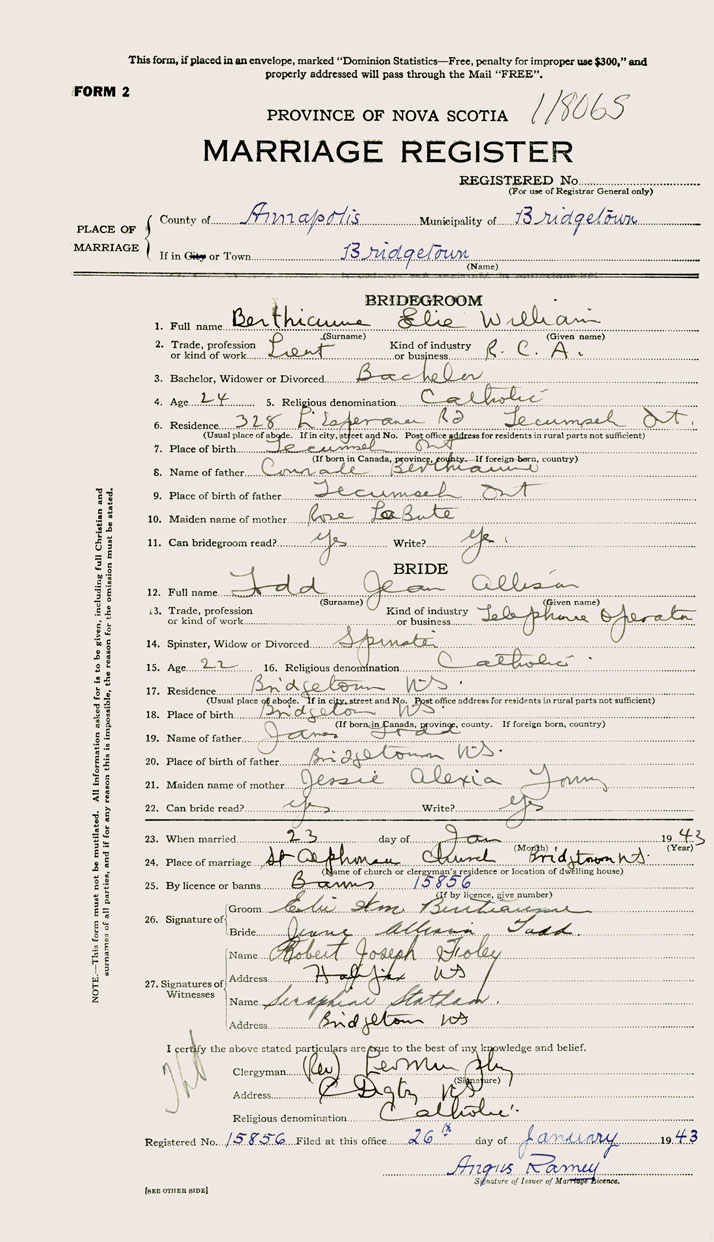 This form, if placed in an envelope, marked "Dominion Statistics—Free, penalty for improper use $300," and
properly addressed will pass through the Mail "FREE".
FORM 2
PROVINCE OF NOVA SCOTIA 118065
MARRIAGE REGISTER
REGISTERED No.
(For use of Registrar General only)
PLACE OF MARRIAGE
County of Annapolis Municipality of Bridgetown
If in City or Town Bridgetown
(Name)
BRIDEGROOM
1. Full name Berthiaume Elie William
(Surname) (Given name)
2. Trade, profession or kind of work Lieut Kind of industry or business R. C. A.
3. Bachelor, Widower or Divorced Bachelor
4. Age 24 5. Religious denomination Catholic
6. Residence 328 L'Esperance Rd Tecumseh Ont.
(Usual place of abode. If in city, street and No. Post office address for residents in rural parts not sufficient)
7. Place of birth Tecumseh Ont
(If born in Canada, province, county. If foreign born, country)
8. Name of father Berthiaume
9. Place of birth of father Tecumseh Ont
10. Maiden name of mother Rose LaBute
11. Can bridegroom read? yes Write? yes
BRIDE
12. Full name Todd Jean Allison
(Surname) (Given name)
13. Trade, profession or kind of work Kind of industry or business Telephone Operator
14. Spinster, Widow or Divorced Spinster
15. Age 22 16. Religious denomination Catholic
17. Residence Bridgetown NS.
(Usual place of abode. If in city, street and No. Post office address for residents in rural parts not sufficient)
18. Place of birth Bridgetown NS.
(If born in Canada, province, county. If foreign born, country)
19. Name of father James Todd
20. Place of birth of father Bridgetown NS.
21. Maiden name of mother Jessie Alexia Young
22. Can bride read? yes Write? yes
23. When married 23 day of Jan 1943
(Month) (Year)
24. Place of marriage St Alphonsus Church Bridgetown NS.
(Name of church or clergyman's residence or location of dwelling house)
25. By licence or banns Banns 15856
(If by licence, give number)
26. Signature of
Groom Elie Wm Berthiaume
Bride Jeane Allison Todd.
27. Signatures of Witnesses
Name Robert Joseph Foley
Address Halifax NS
Name Seraphine Statham.
Address Bridgetown NS
I certify the above stated particulars are true to the best of my knowledge and belief.
Clergyman (Rev)
(Signature)
Address Digby NS
Religious denomination Catholic.
Registered No. 15856 Filed at this office 26th day of January 1943
Angus Ramey
Signature of Issuer of Marriage Licence.
[SEE OTHER SIDE]
NOTE.—This form must not be mutilated. All information asked for is to be given, including full Christian and
surnames of all parties, and if for any reason this is impossible, the reason for the omission must be stated.